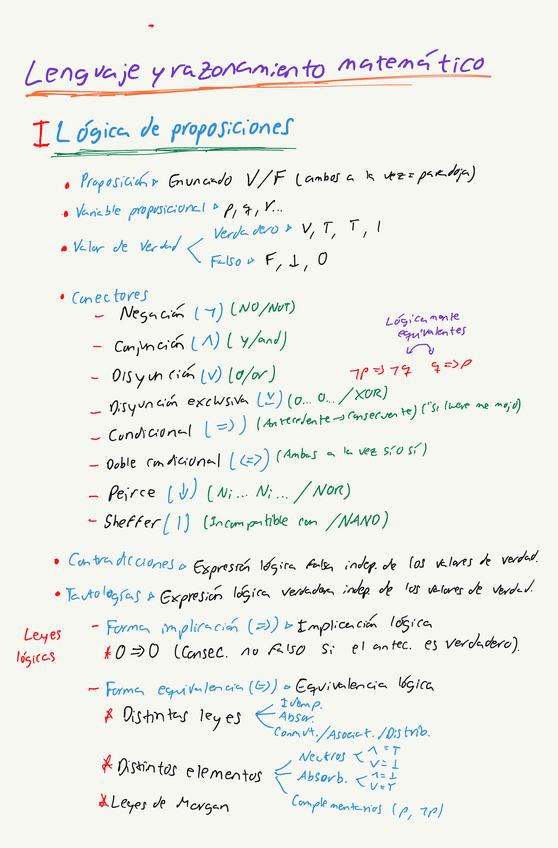 Lenguaje y razonamiento matemático
I Lógica de proposiciones
• Proposición ▹ Enunciado V/F (ambos a la vez = paradoja)
• Variable proposicional ▹ p, q, r...
• Valor de verdad
Verdadero ▹ V, T, ⊤, 1
Falso ▹ F, ⊥, 0
• Conectores
– Negación (¬) (NO/NOT)
– Conjunción (∧) (y/and)
– Disyunción (∨) (o/or)
– Disyunción exclusiva (⊻) (o... o... /XOR)
– Condicional (=>) (Antecedente → consecuente) ("Si llueve me mojo)
– Doble condicional (<=>) (Ambas a la vez sí o sí)
– Peirce (↓) (Ni... Ni... /NOR)
– Sheffer (|) (Incompatible con /NAND)
Lógicamente
equivalentes
¬p => ¬q q => p
• Contradicciones ▹ Expresión lógica falsa indep. de los valores de verdad.
• Tautologías ▹ Expresión lógica verdadera indep. de los valores de verdad.
Leyes
lógicas
– Forma implicación (=>) ▹ Implicación lógica
* 0 => 0 (Consec. no FALSO si el antec. es verdadero).
– Forma equivalencia (<=>) ▹ Equivalencia lógica
* Distintas leyes
Idemp.
Absor.
Conmut./Asociat./Distrib.
* Distintos elementos
Neutros
∧ = ⊤
∨ = ⊥
Absorb.
∧ = ⊥
∨ = ⊤
Complementarios (p, ¬p)
* Leyes de Morgan